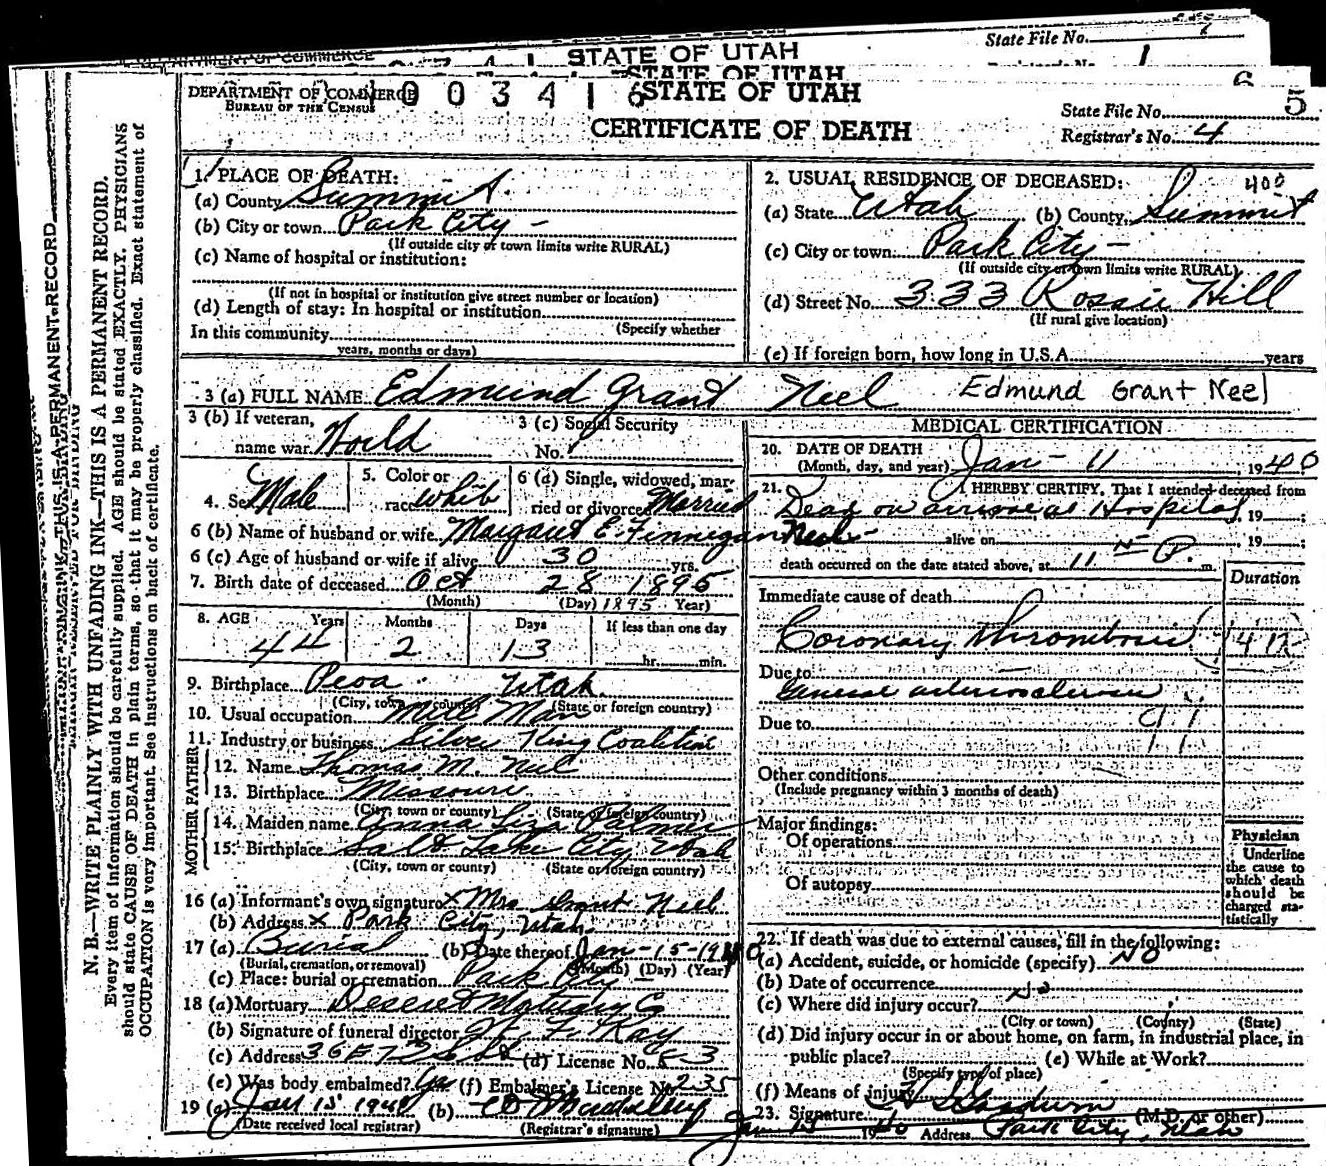 STATE OF UTAH
State File No.
STATE OF UTAH
DEPARTMENT OF COMMERCE
BUREAU OF THE CENSUS
STATE OF UTAH
CERTIFICATE OF DEATH
State File No. 5
Registrar's No. 4
N. B.—WRITE PLAINLY WITH UNFADING INK—THIS IS A PERMANENT RECORD.
Every item of information should be carefully supplied. AGE should be stated EXACTLY. PHYSICIANS
should state CAUSE OF DEATH in plain terms, so that it may be properly classified. Exact statement of
OCCUPATION is very important. See instructions on back of certificate.
1. PLACE OF DEATH:
(a) County Summit
(b) City or town Park City -
(If outside city or town limits write RURAL)
(c) Name of hospital or institution:
(If not in hospital or institution give street number or location)
(d) Length of stay: In hospital or institution
(Specify whether
In this community
years, months or days)
2. USUAL RESIDENCE OF DECEASED: 400
(a) State Utah (b) County Summit
(c) City or town Park City -
(If outside city or town limits write RURAL)
(d) Street No. 333 Rossie Hill
(If rural give location)
(e) If foreign born, how long in U.S.A. years
3 (a) FULL NAME Edmund Grant Neel Edmund Grant Neel
3 (b) If veteran,
name war World
3 (c) Social Security
No.
4. Sex Male
5. Color or
race White
6 (a) Single, widowed, mar-
ried or divorced Married
6 (b) Name of husband or wife Margaret E. Finnegan Neel
6 (c) Age of husband or wife if alive 30 yrs.
7. Birth date of deceased Oct 28 1895
(Month) (Day) 1895 Year)
8. AGE Years Months Days If less than one day
44 2 13 hr. min.
9. Birthplace Peoa Utah
(City, town or county) (State or foreign country)
10. Usual occupation Mill Man
11. Industry or business Silver King Coalition
FATHER
12. Name Thomas M. Neel
13. Birthplace Missouri
(City, town or county) (State or foreign country)
MOTHER
14. Maiden name Anna Liza Palmer
15. Birthplace Salt Lake City Utah
(City, town or county) (State or foreign country)
16 (a) Informant's own signature x Mrs Grant Neel
(b) Address x Park City, Utah.
17 (a) Burial (b) Date thereof Jan-15-1940
(Burial, cremation, or removal) (Month) (Day) (Year)
(c) Place: burial or cremation Park City -
18 (a) Mortuary Deseret Mortuary Co
(b) Signature of funeral director
(c) Address 36 E 7 (d) License No. 53
(e) Was body embalmed? Yes (f) Embalmer's License No. 235
19 (a) Jan 15 1940 (b)
(Date received local registrar) (Registrar's signature)
MEDICAL CERTIFICATION
20. DATE OF DEATH
(Month, day, and year) Jan - 11, 1940
21. I HEREBY CERTIFY, That I attended deceased from
Dead on arrival at Hospital, 19 ;
alive on , 19 ;
death occurred on the date stated above, at 11 P. m.
Duration
Immediate cause of death
Coronary Thrombosis
Due to
General arteriosclerosis
Due to
Other conditions
(Include pregnancy within 3 months of death)
Major findings:
Of operations
Of autopsy
Physician
Underline
the cause to
which death
should be
charged sta-
tistically
22. If death was due to external causes, fill in the following:
(a) Accident, suicide, or homicide (specify) NO
(b) Date of occurrence
(c) Where did injury occur? No
(City or town) (County) (State)
(d) Did injury occur in or about home, on farm, in industrial place, in
public place? (e) While at Work?
(Specify type of place)
(f) Means of injury
23. Signature (M.D. or other)
1940 Address Park City, Utah